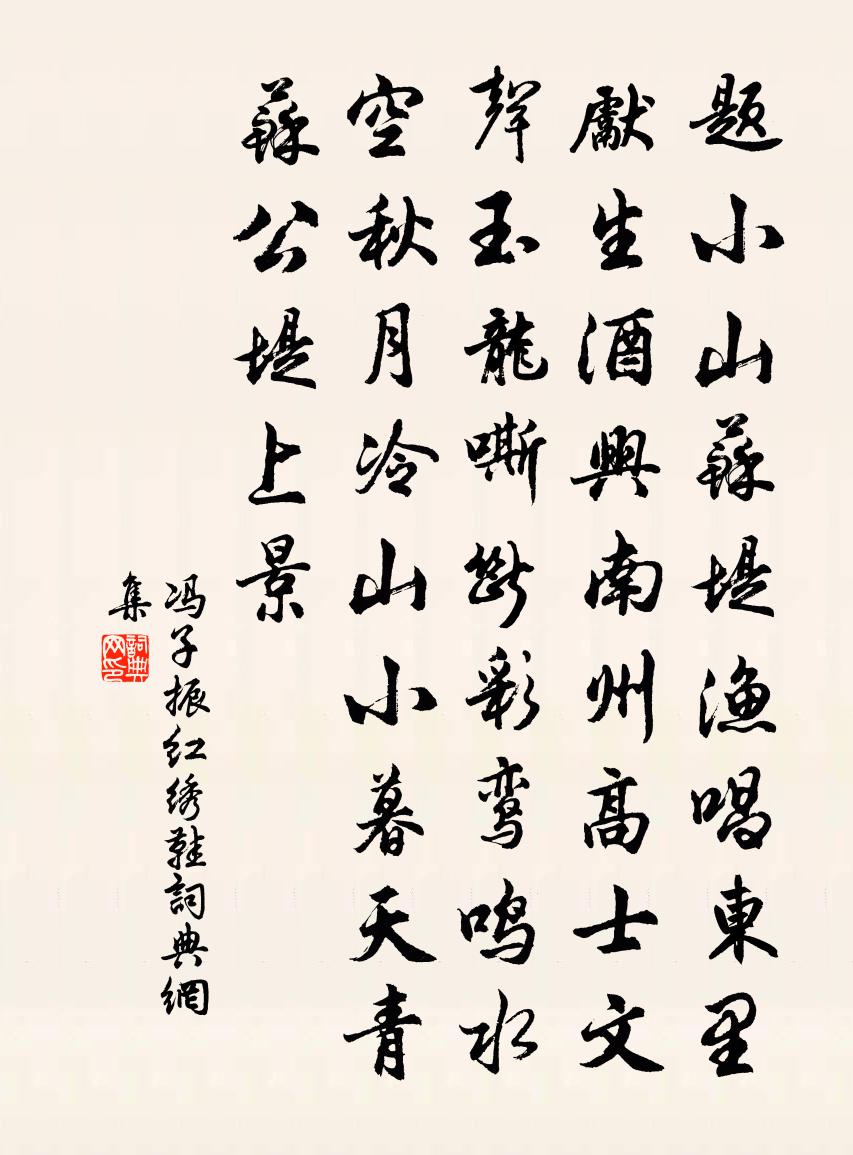 题小山蘇堤漁唱東里
獻生酒興南州高士文
聲玉龍嘶斷彩鸾鸣水
空秋月冷山小暮天青
蘇公堤上景
冯子振红绣鞋詞典網
集
詞典
网印